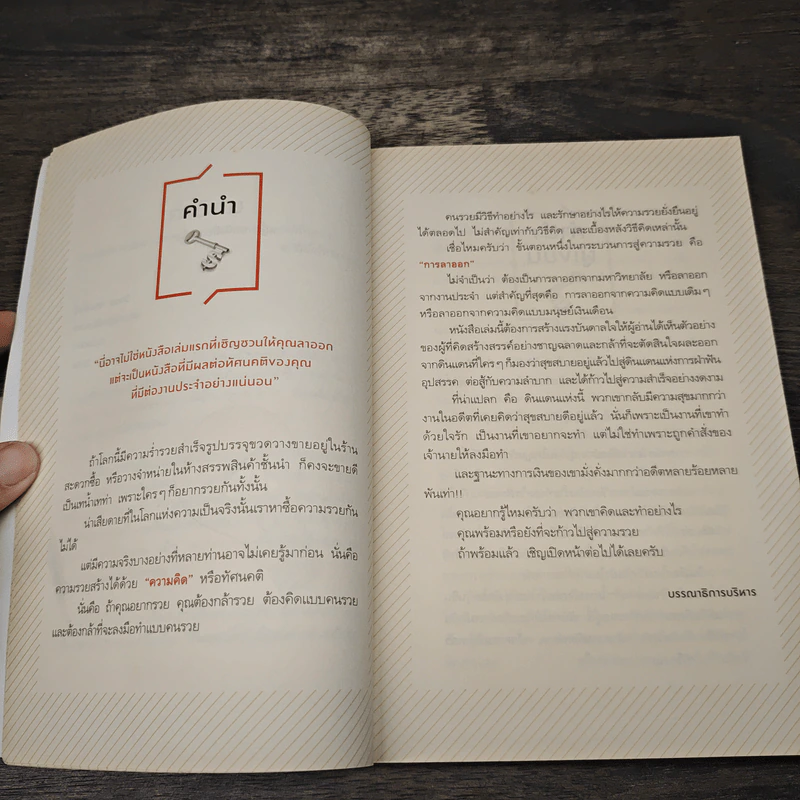 คำนำ
"นี่อาจไม่ใช่หนังสือเล่มแรกที่เชิญชวนให้คุณลาออก
แต่จะเป็นหนังสือที่มีผลต่อทัศนคติของคุณ
ที่มีต่องานประจำอย่างแน่นอน"
ถ้าโลกนี้มีความร่ำรวยสำเร็จรูปบรรจุขวดวางขายอยู่ในร้าน
สะดวกซื้อ หรือวางจำหน่ายในห้างสรรพสินค้าชั้นนำ ก็คงจะขายดี
เป็นเทน้ำเทท่า เพราะใครๆ ก็อยากรวยกันทั้งนั้น
น่าเสียดายที่ในโลกแห่งความเป็นจริงนั้นเราหาซื้อความรวยกัน
ไม่ได้
แต่มีความจริงบางอย่างที่หลายท่านอาจไม่เคยรู้มาก่อน นั่นคือ
ความรวยสร้างได้ด้วย "ความคิด" หรือทัศนคติ
นั่นคือ ถ้าคุณอยากรวย คุณต้องกล้ารวย ต้องคิดแบบคนรวย
และต้องกล้าที่จะลงมือทำแบบคนรวย
คนรวยมีวิธีทำอย่างไร และรักษาอย่างไรให้ความรวยยั่งยืนอยู่
ได้ตลอดไป ไม่สำคัญเท่ากับวิธีคิด และเบื้องหลังวิธีคิดเหล่านั้น
เชื่อไหมครับว่า ขั้นตอนหนึ่งในกระบวนการสู่ความรวย คือ
"การลาออก"
ไม่จำเป็นว่า ต้องเป็นการลาออกจากมหาวิทยาลัย หรือลาออก
จากงานประจำ แต่สำคัญที่สุดคือ การลาออกจากความคิดแบบเดิมๆ
หรือลาออกจากความคิดแบบมนุษย์เงินเดือน
หนังสือเล่มนี้ต้องการสร้างแรงบันดาลใจให้ผู้อ่านได้เห็นตัวอย่าง
ของผู้ที่คิดสร้างสรรค์อย่างชาญฉลาดและกล้าที่จะตัดสินใจผละออก
จากดินแดนที่ใครๆ ก็มองว่าสุขสบายอยู่แล้วไปสู่ดินแดนแห่งการฝ่าฟัน
อุปสรรค ต่อสู้กับความลำบาก และได้ก้าวไปสู่ความสำเร็จอย่างงดงาม
ที่น่าแปลก คือ ดินแดนแห่งนี้ พวกเขากลับมีความสุขมากกว่า
งานในอดีตที่เคยคิดว่าสุขสบายดีอยู่แล้ว นั่นก็เพราะเป็นงานที่เขาทำ
ด้วยใจรัก เป็นงานที่เขาอยากจะทำ แต่ไม่ใช่ทำเพราะถูกคำสั่งของ
เจ้านายให้ลงมือทำ
และฐานะทางการเงินของเขามั่งคั่งมากกว่าอดีตหลายร้อยหลาย
พันเท่า!!
คุณอยากรู้ไหมครับว่า พวกเขาคิดและทำอย่างไร
คุณพร้อมหรือยังที่จะก้าวไปสู่ความรวย
ถ้าพร้อมแล้ว เชิญเปิดหน้าต่อไปได้เลยครับ
บรรณาธิการบริหาร